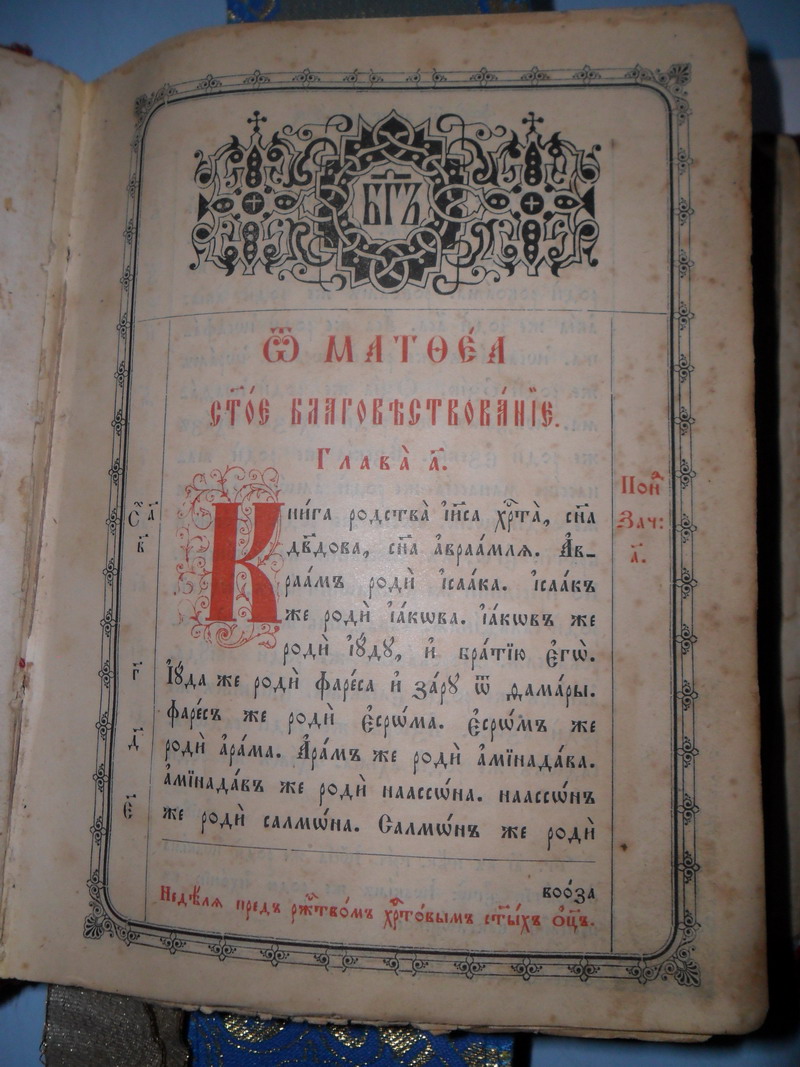 БГ҃Ъ
Ѿ МАТѲЕ́А
СТ҃О́Е БЛАГОВѢСТВОВА́НЇЕ.
Глава̀ а҃.
Кни́га родства̀ і҆и҃са хр҇та̀, сн҃а
дв҃дова, сн҃а а҆враа́млѧ. А҆в-
раа́мъ родѝ і҆саа́ка. і҆саа́къ
же родѝ і҆а́кѡва. і҆а́кѡвъ же
родѝ і҆ꙋ́дꙋ, и҆ бра́тїю є҆гѡ̀.
І҆ꙋ́да же родѝ фаре́са и҆ за́рꙋ ѿ ѳама́ры.
фаре́съ же родѝ є҆срѡ́ма. є҆срѡ́мъ же
родѝ а҆ра́ма. А҆ра́мъ же родѝ а҆мїнада́ва.
а҆мїнада́въ же родѝ наассѡ́на. наассѡ́нъ
же родѝ салмѡ́на. Салмѡ́нъ же родѝ
воо́за
Недѣ́лѧ предъ рж҇тво́мъ хр҇то́вымъ ст҃ы́хъ ѻ҆ц҃ъ.
Сⷯ а҃
в҃
г҃
д҃
є҃
Поⷩ҇
Зач:
а҃.